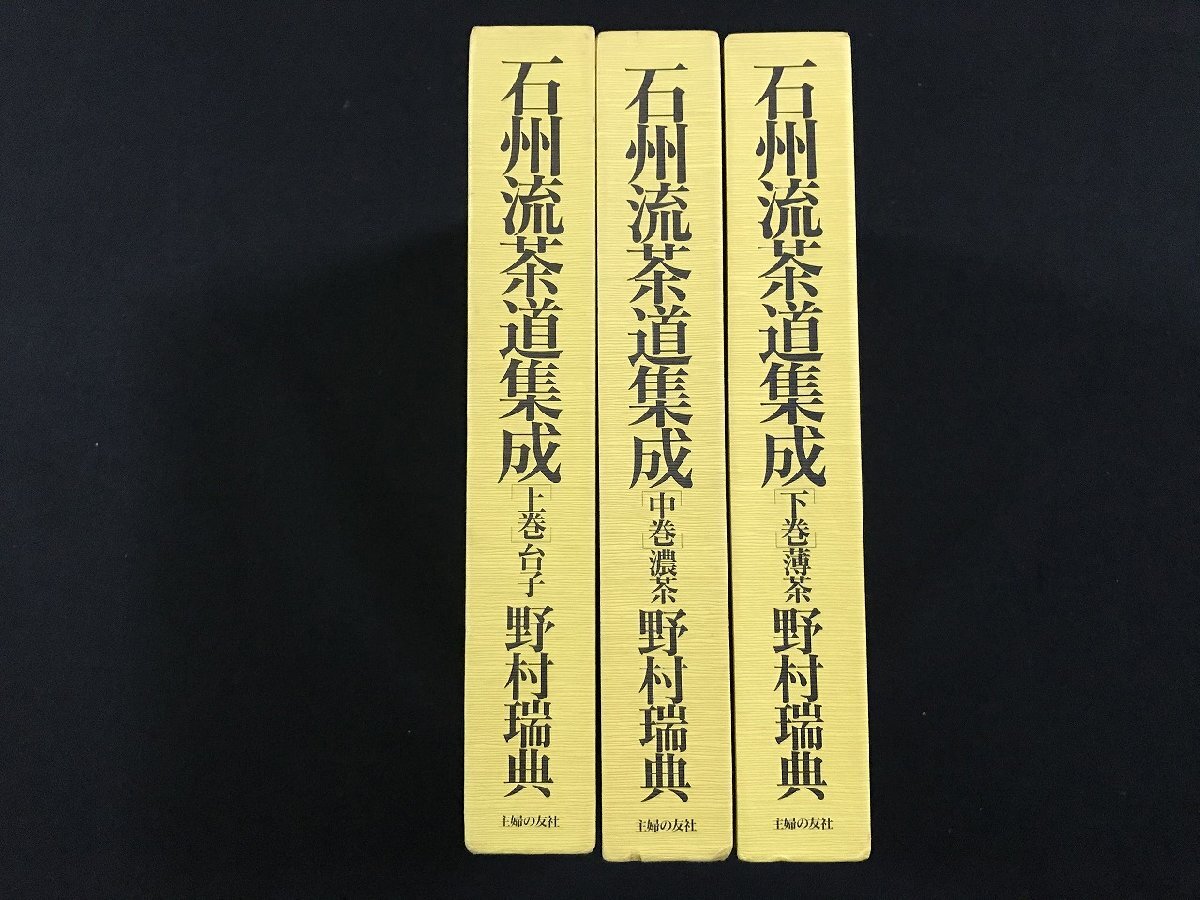 石州流茶道集成[上巻]台子 野村瑞典
主婦の友社
石州流茶道集成[中巻]濃茶 野村瑞典
主婦の友社
石州流茶道集成[下巻]薄茶 野村瑞典
主婦の友社